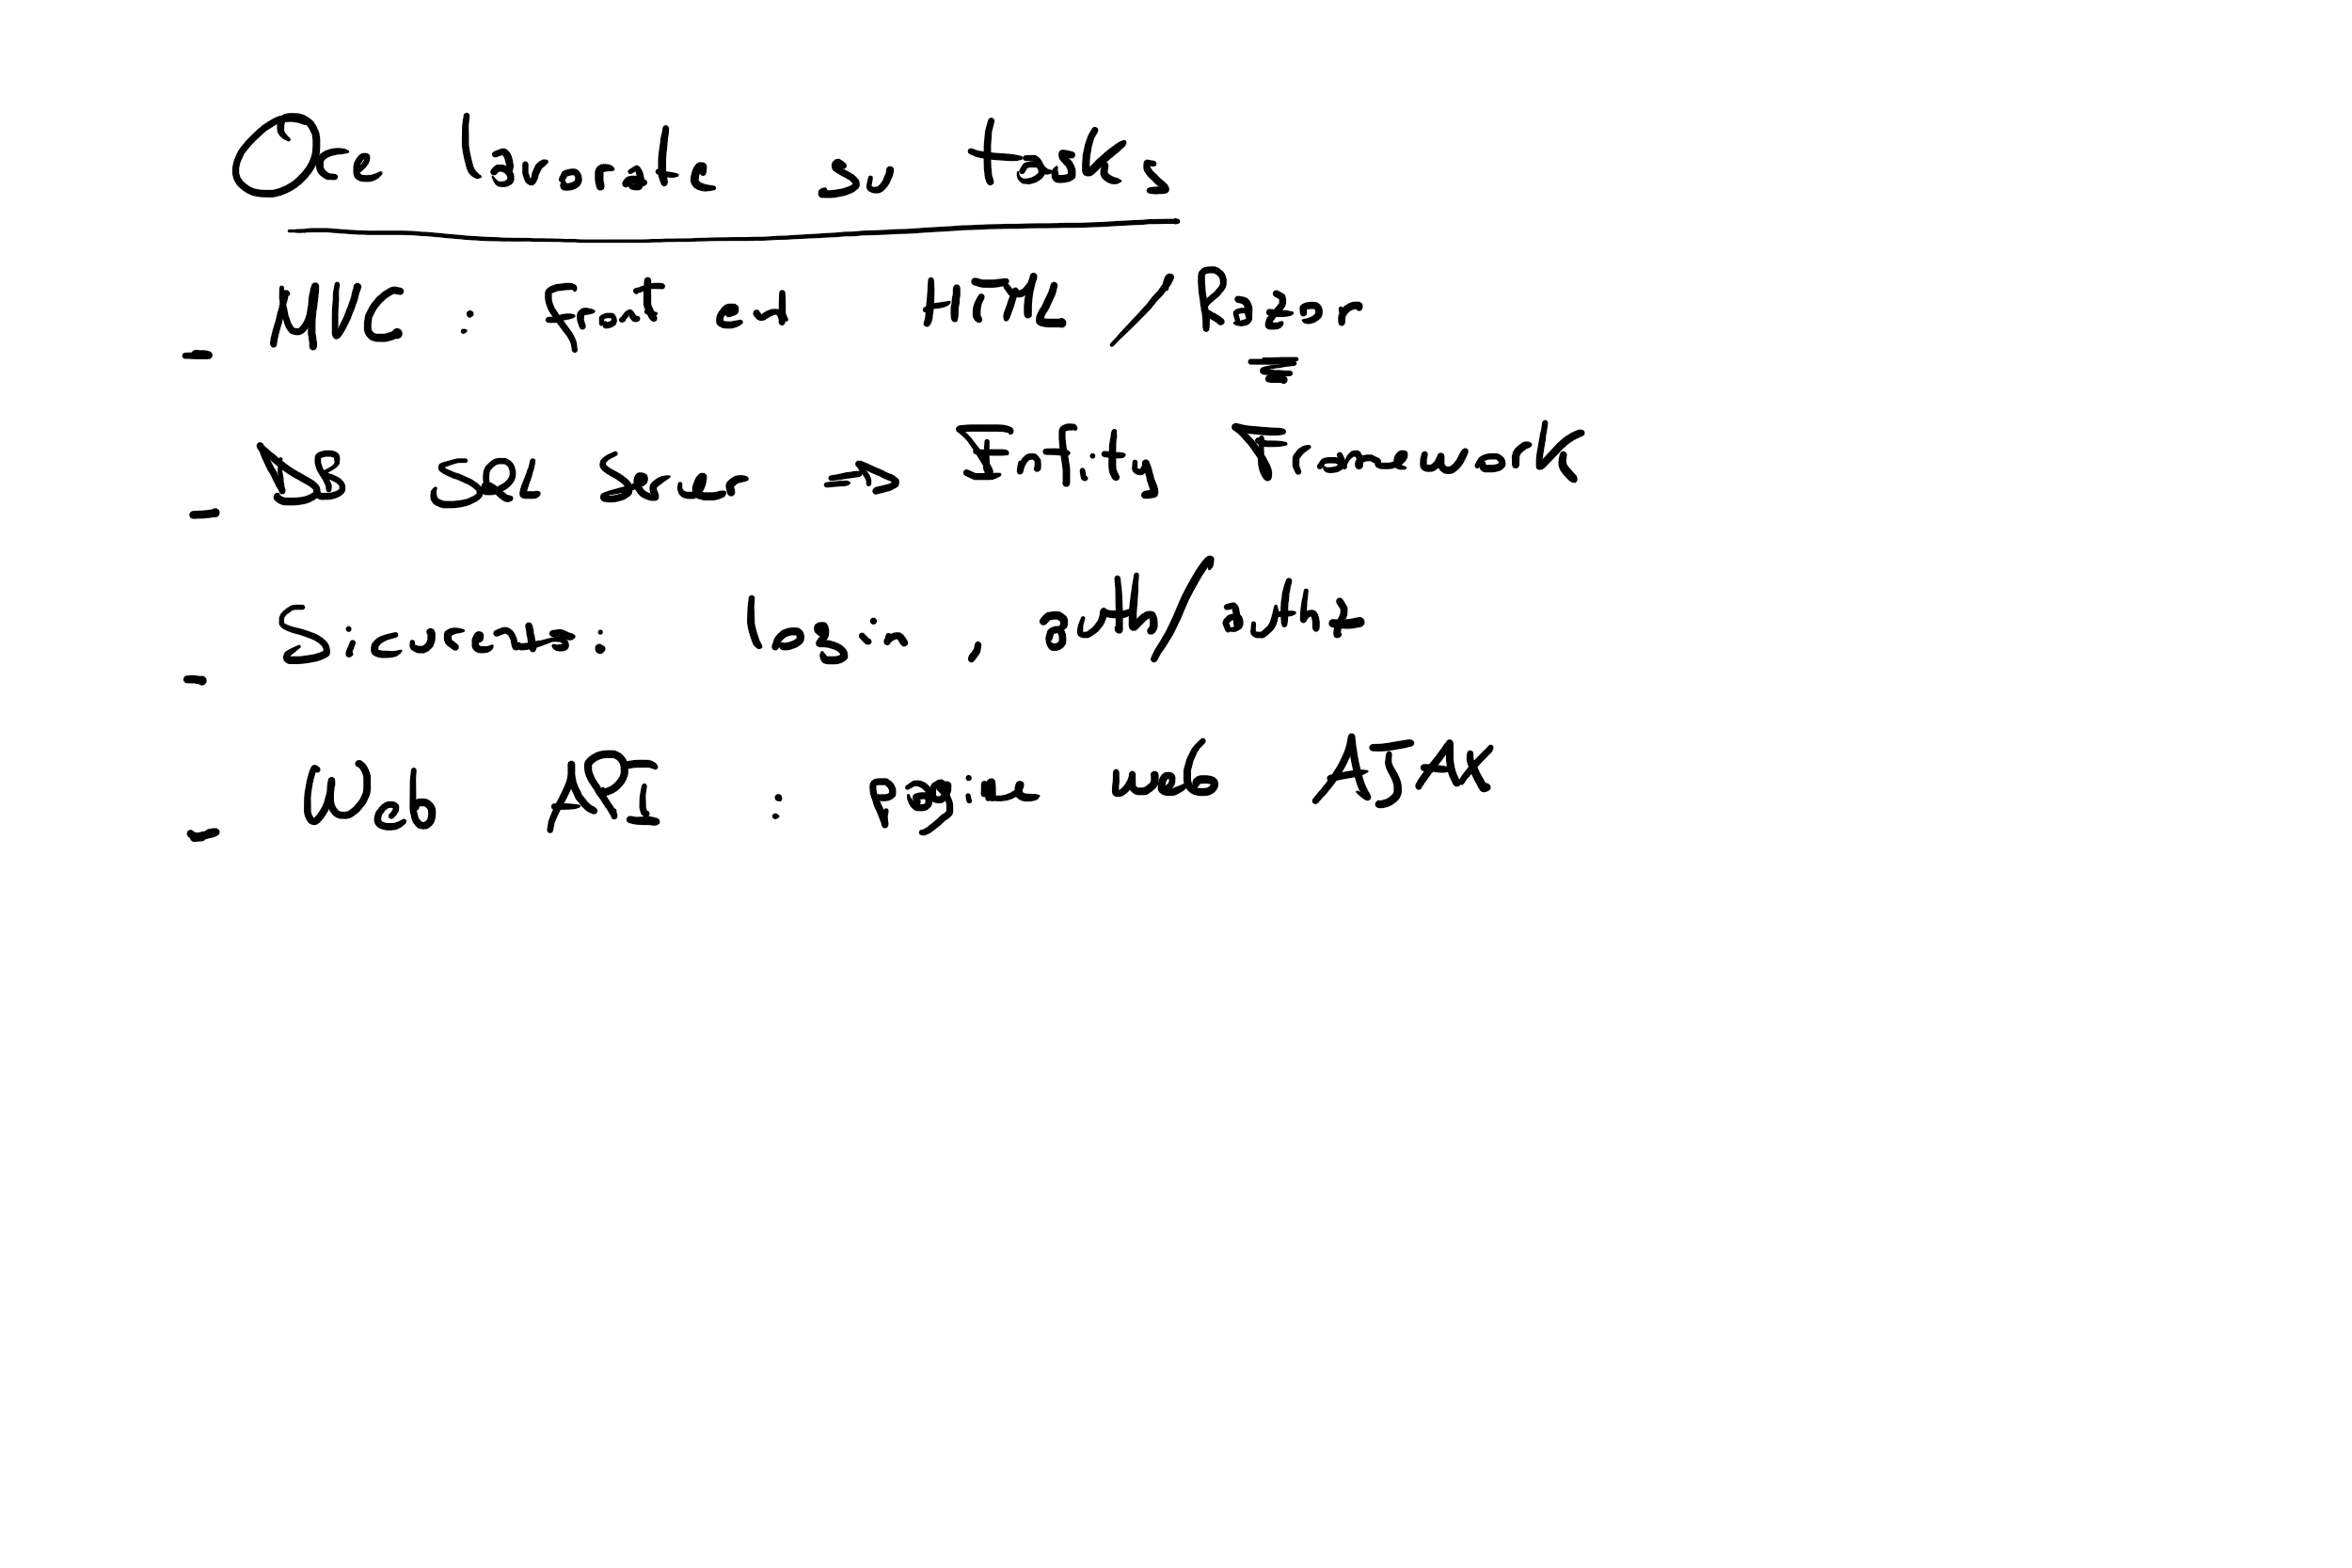 Ore lavorate su tasks
- MVC : Front end HTML / Razor
- DB SQL Server → Entity Framework
- Sicurezza: login, auth/authz
- Web API : pagina web AJAX